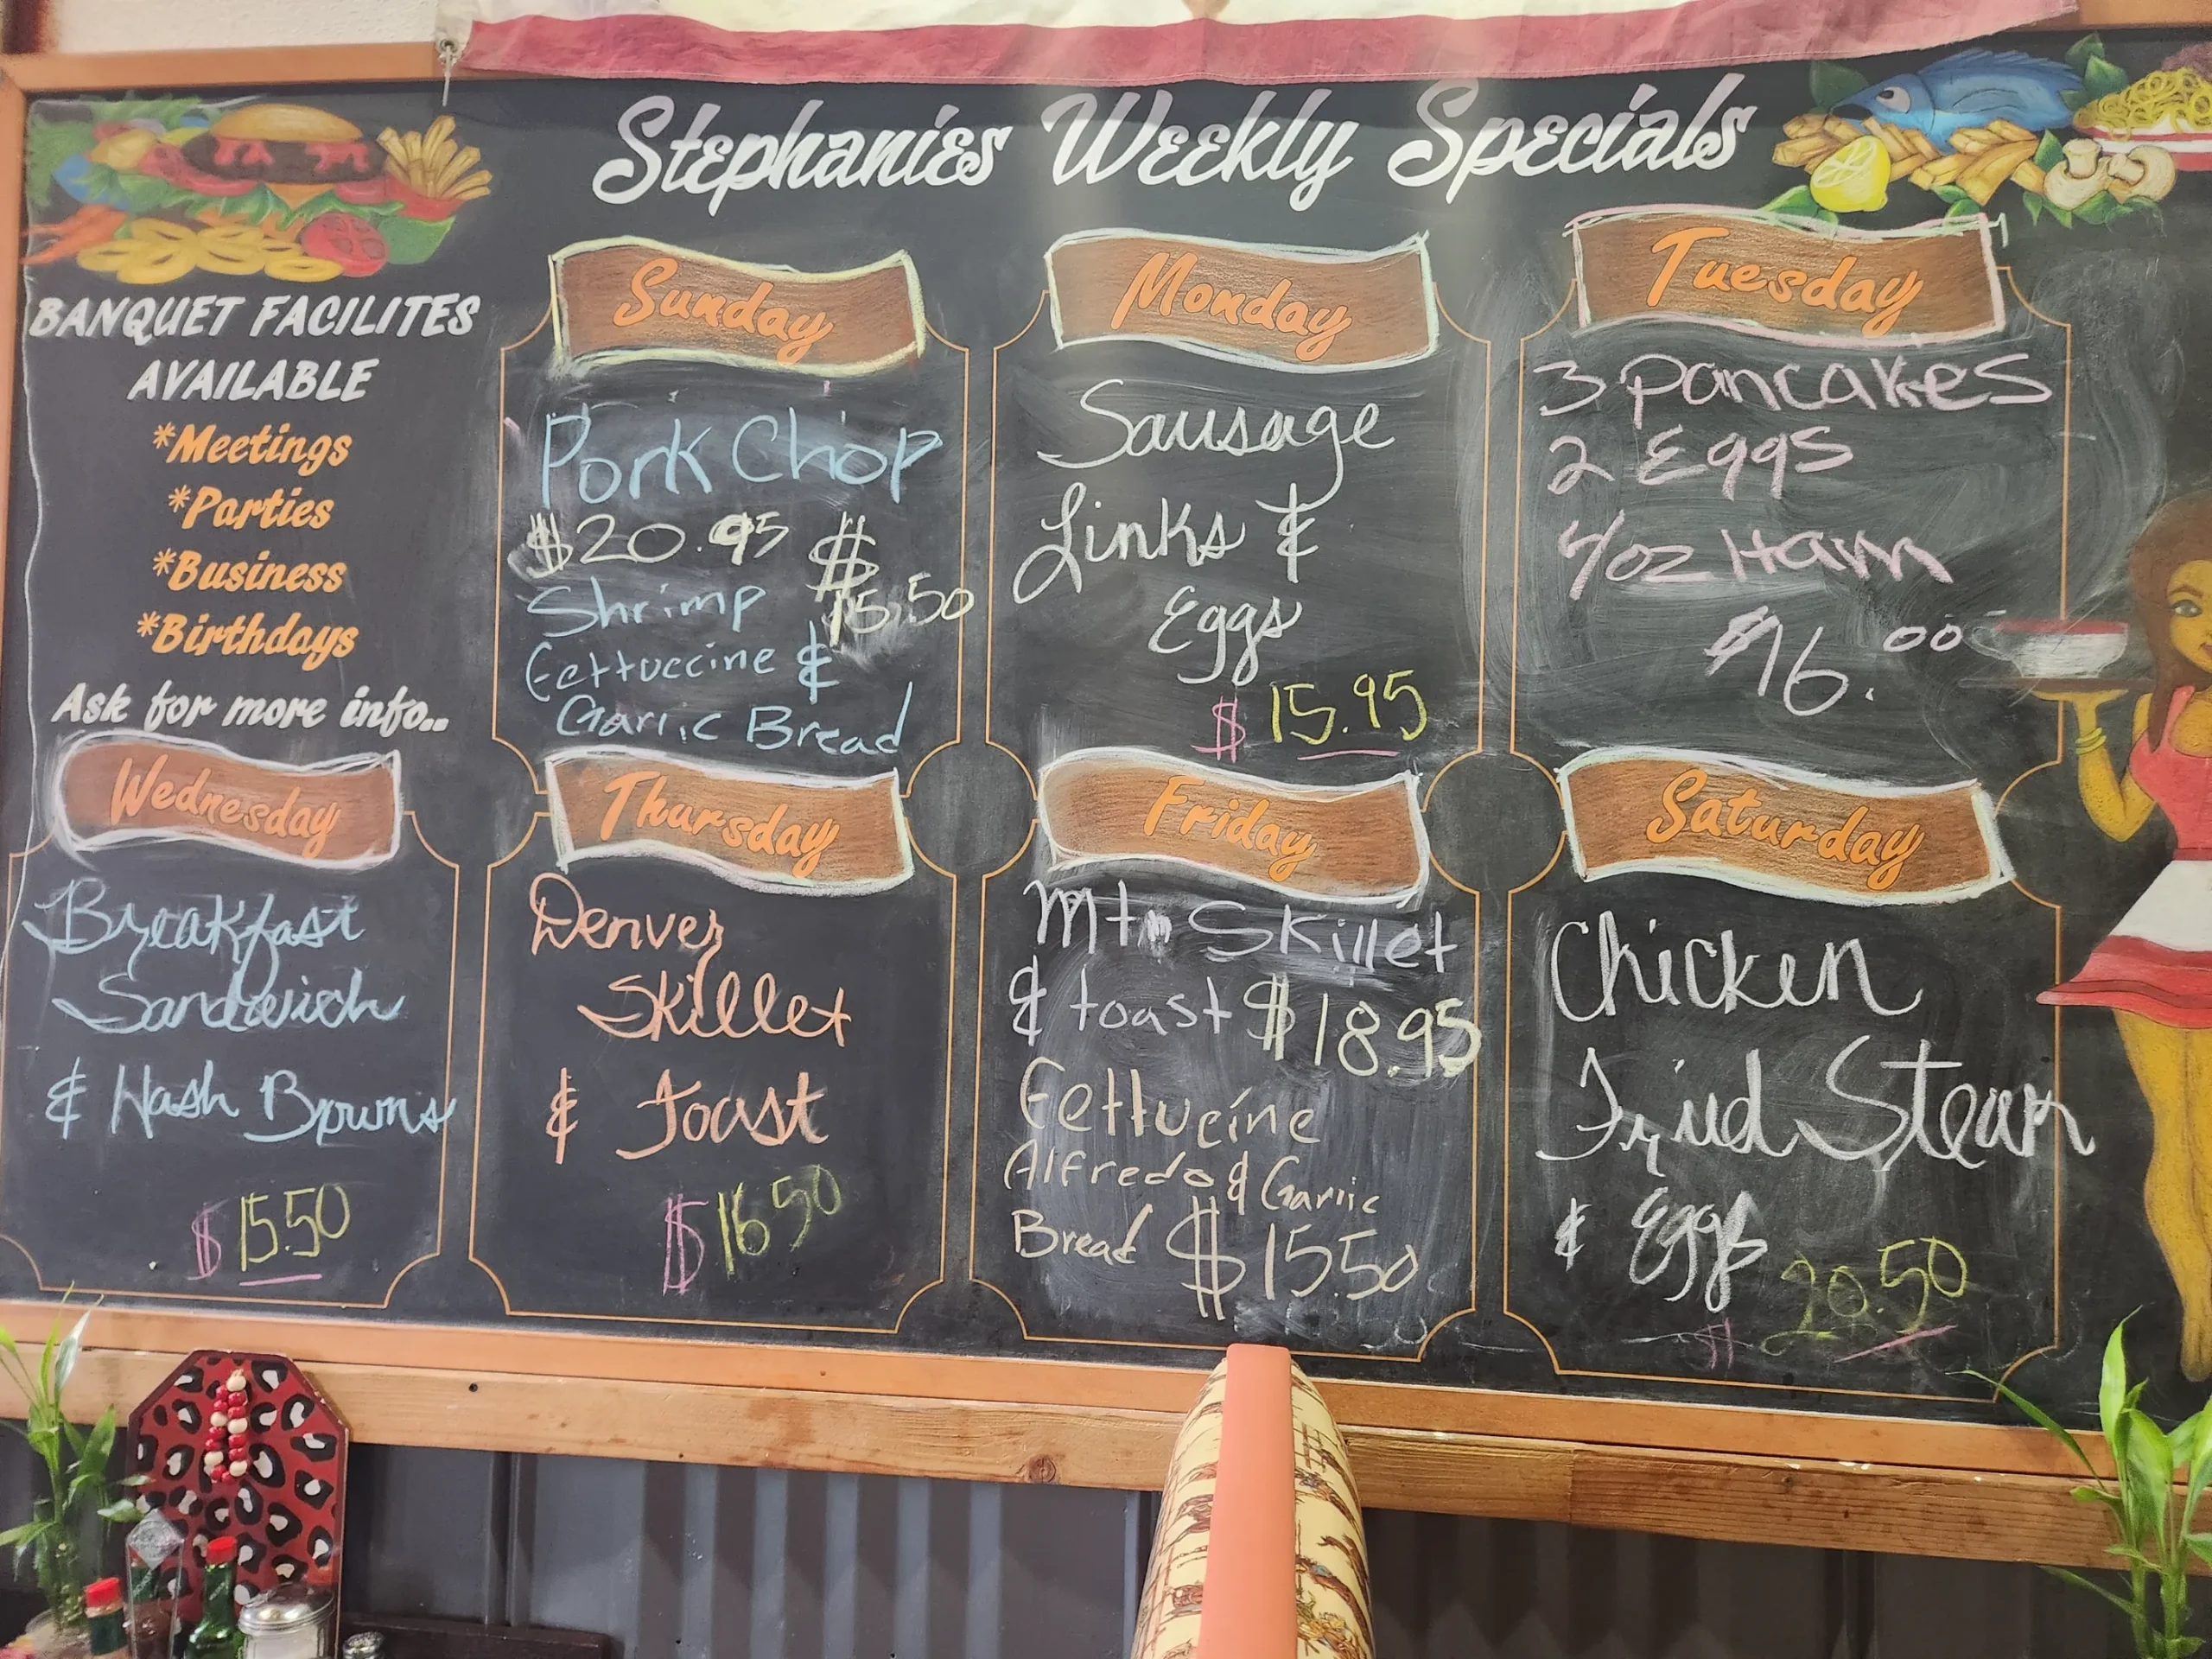 Stephanies Weekly Specials
BANQUET FACILITES
AVAILABLE
*Meetings
*Parties
*Business
*Birthdays
Ask for more info..
Sunday
Pork Chop
$20.95 $
Shrimp 15.50
Fettuccine &
Garlic Bread
Monday
Sausage
Links &
Eggs
$ 15.95
Tuesday
3 Pancakes
2 Eggs
4/oz Ham
$16.00
Wednesday
Breakfast
Sandwich
& Hash Browns
$ 15.50
Thursday
Denver
Skillet
& Toast
$ 16.50
Friday
Mtn Skillet
& toast $18.95
Fettucine
Alfredo & Garlic
Bread $15.50
Saturday
Chicken
Fried Steak
& Eggs
$ 20.50